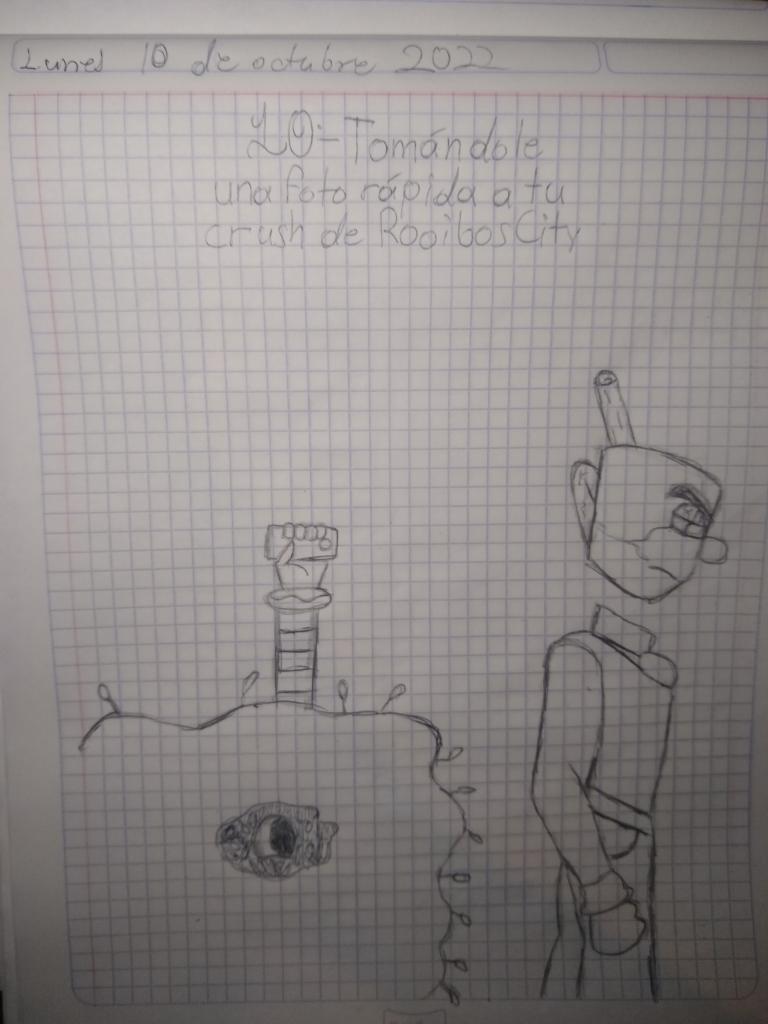 Lunes 10 de octubre 2022
10-Tomándole
una foto rápida a tu
crush de Rooibos City